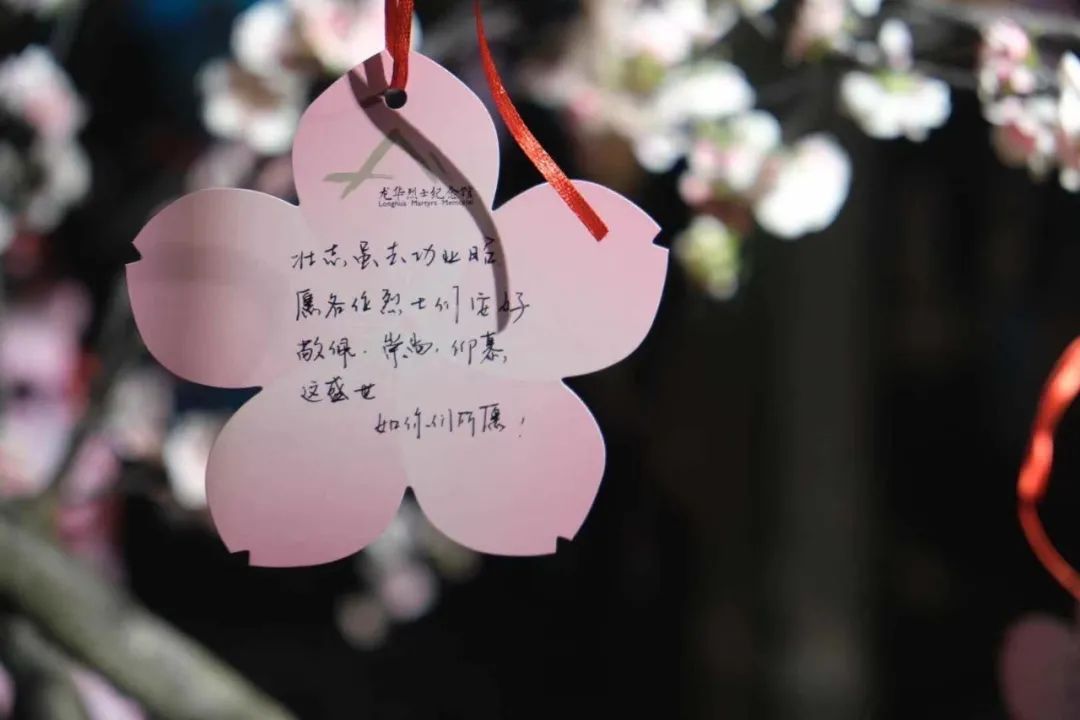 龙华烈士纪念馆
Longhua Martyrs Memorial
壮志虽去功业
愿各位烈士们安好
敬佩.崇尚.仰慕,
这盛世
如你们所愿!